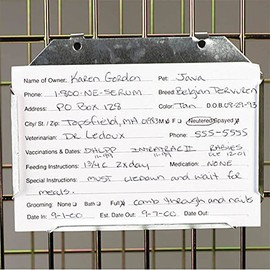 Name of Owner: Karen Gordon Pet: Java
Phone: 1-800-NE-SERUM Breed: Belgian Tervuren
Address: PO Box 128 Color: Tan D.O.B.
City/St./Zip: Topsfield, MA M F Neutered/Spayed
Veterinarian: Dr. Ledoux Phone: 555-5555
Vaccinations & Dates: DHLPP INTRATRAC II RABIES
11-99 11-99 12-01
Feeding Instructions: 1 3/4 C 2x day Medication: NONE
Special Instructions: Must lie down and wait for
meals.
Grooming: None Bath Full comb through and nails
Date In: 9-1-00 Est. Date Out: 9-7-00 Date Out: